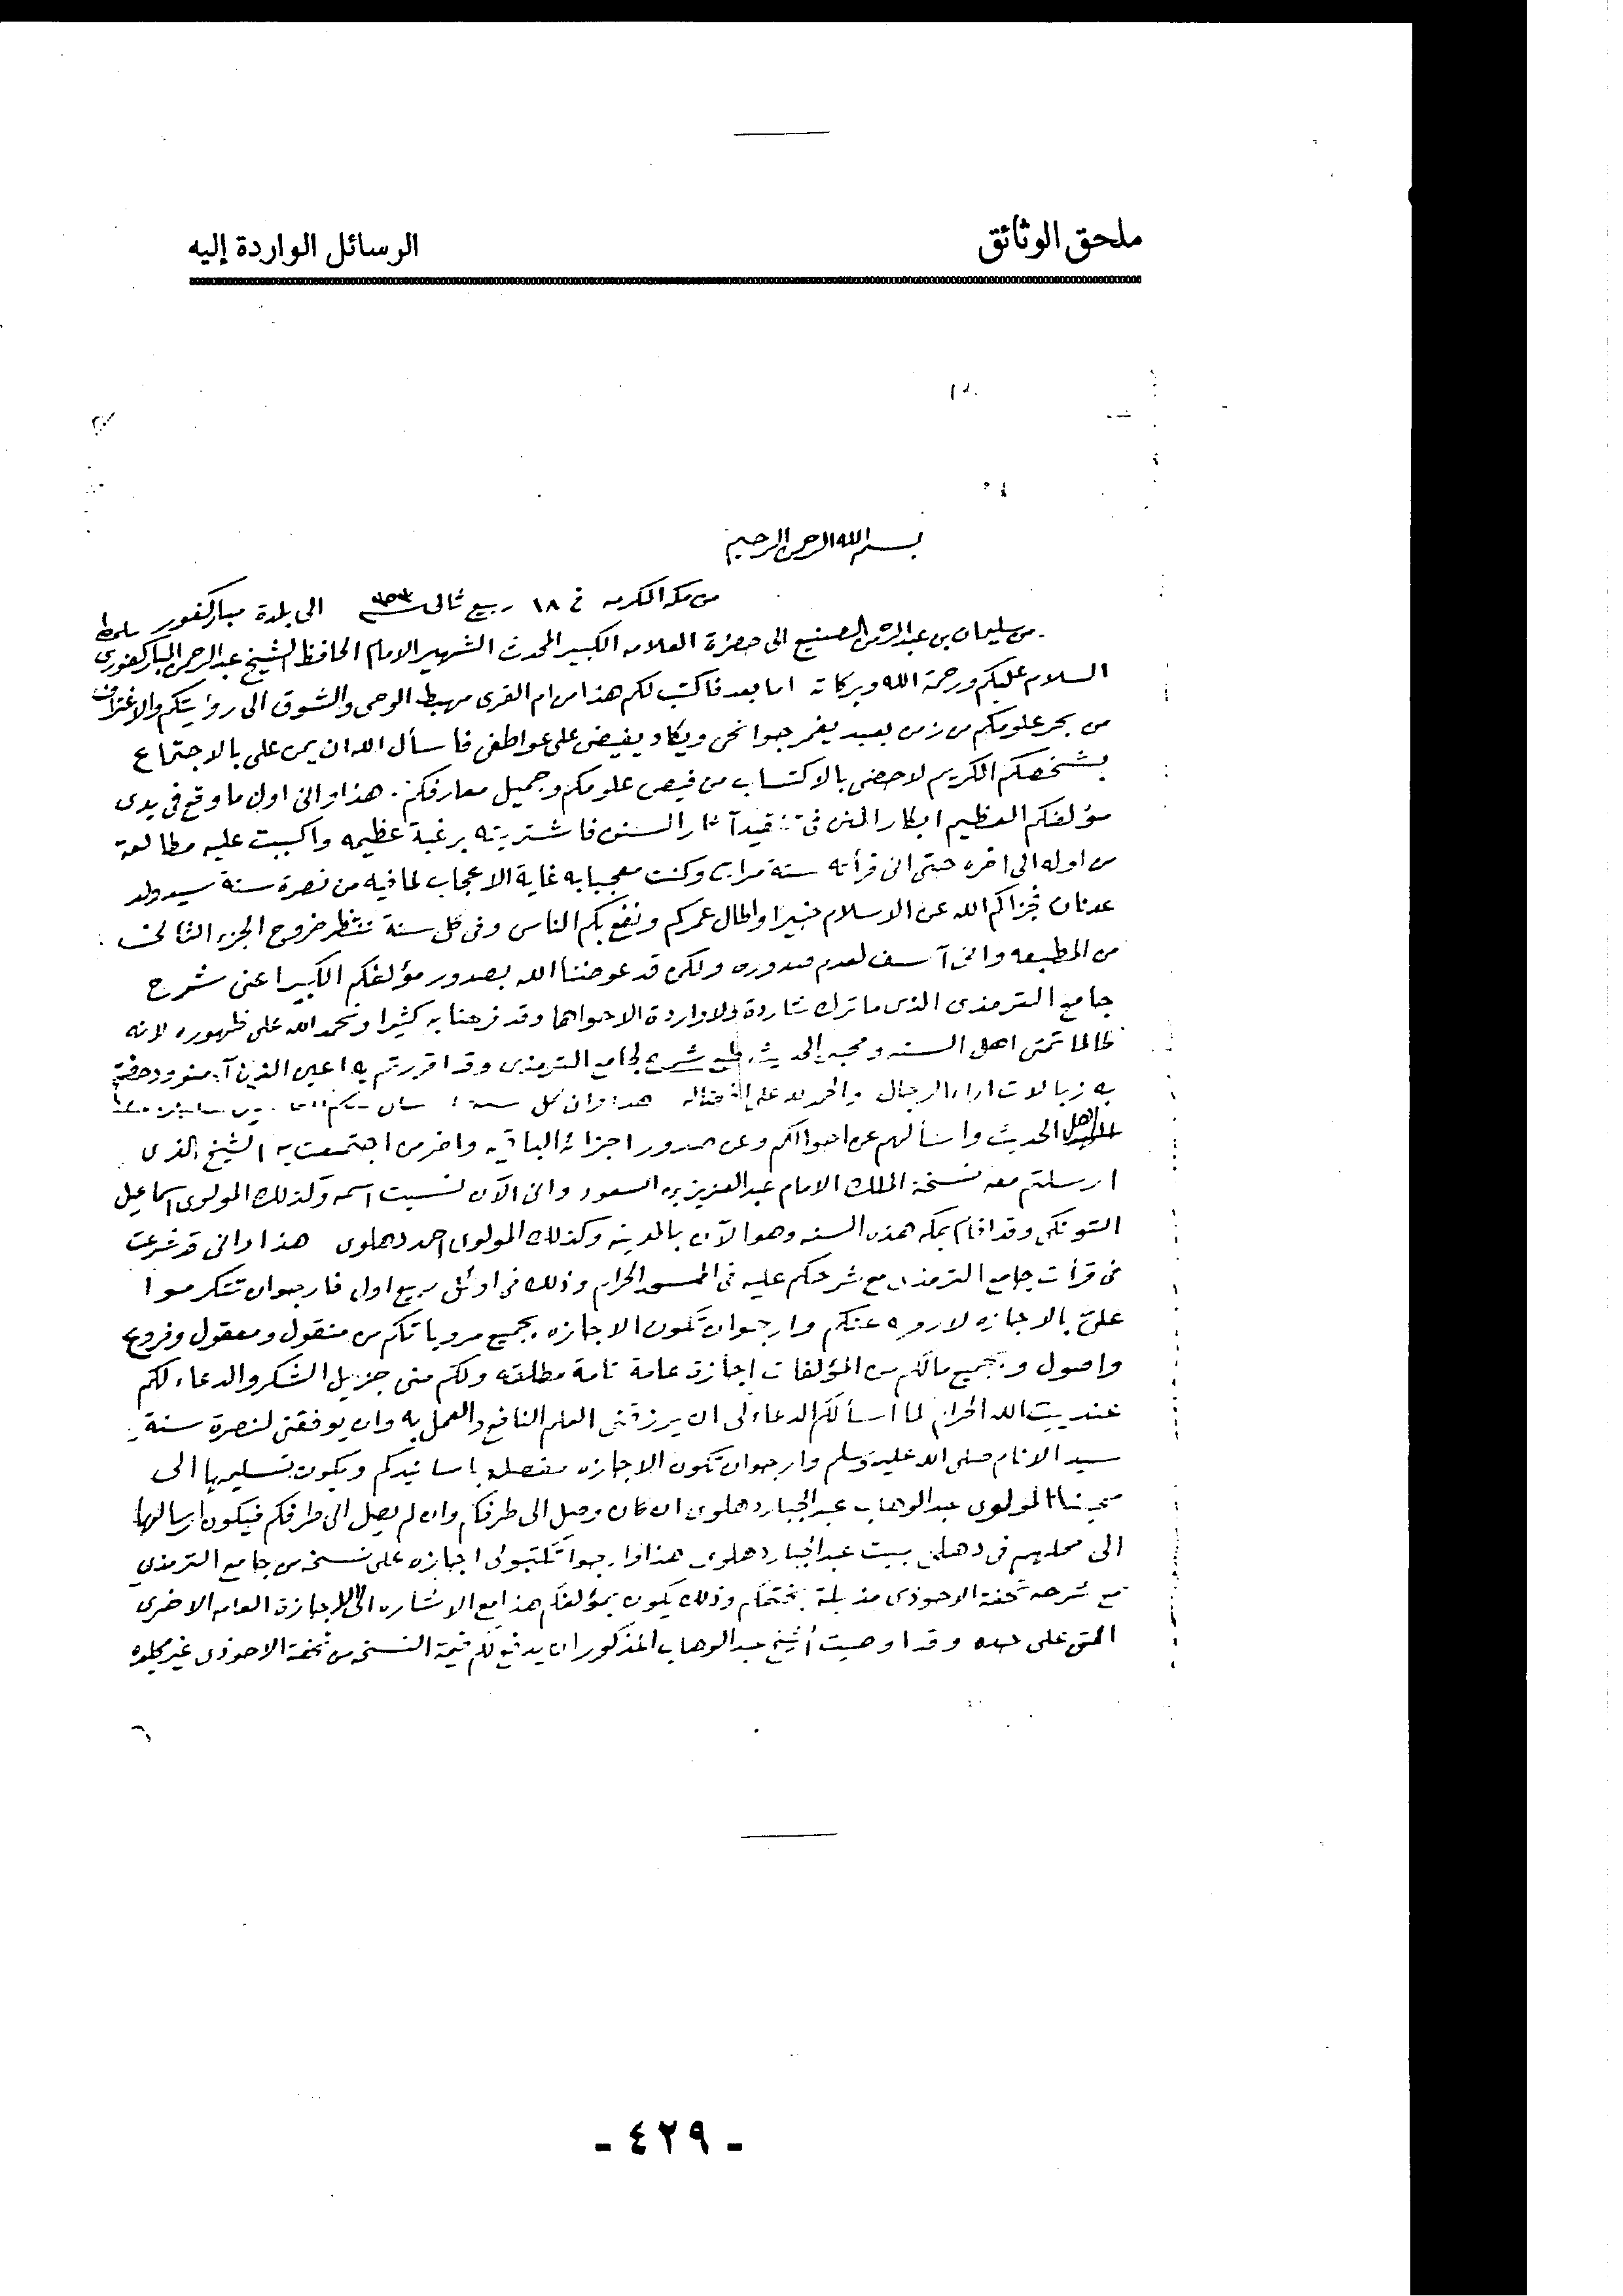 ملحق الوثائق
الرسائل الواردة إليه
بسم الله الرحمن الرحيم
من مكة المكرمه في ١٨ ربيع ثاني الى بلدة مباركفور
من سليمان بن عبدالرحمن الصنيع الى حضرة العلامه الكبير المحدث الشهير الامام الحافظ الشيخ عبدالرحمن المباركفوري
السلام عليكم ورحمة الله وبركاته اما بعد فاكتب لكم هذا من ام القرى مهبط الوحي والشوق الى رؤيتكم والاغتراف
من بحر علومكم من زمن بعيد يغمر جوانحي ويكاد يفيض على عواطفي فاسأل الله ان يمن علي بالاجتماع
بشخصكم الكريم لاحضى بالاكتساب من فيض علومكم وجميل معارفكم. هذا واني اول ما وقع في يدي
مؤلفكم العظيم ابكار المنن في تنقيد آثار السنن فاشتريته برغبة عظيمه واكببت عليه مطالعة
من اوله الى اخره حتى اني قرأته ستة مرات وكنت معجبا به غاية الاعجاب لما فيه من نصرة سنة سيد ولد
عدنان فجزاكم الله عن الاسلام خيرا واطال عمركم ونفع بكم الناس وفي كل سنة ننتظر خروج الجزء الثاني
من المطبعه واني آسف لعدم صدوره ولكن قد عوضنا الله بصدور مؤلفكم الكبير اعني شرح
جامع الترمذي الذي ما ترك شاردة ولا واردة الا حواها وقد فرحنا به كثيرا ونحمد الله على ظهوره لانه
طالما تمنى اهل السنه ومحبي الحديث طبع شرح لجامع الترمذي وقد اقررتم به اعين الذين آمنوا ودحضتم
به زبالات اراء الرجال والحمد لله على افضاله هذا وان كل سنة
اهل الحديث واسألهم عن احوالكم وعن صدور اجزائه الباقيه واخر من اجتمعت به الشيخ الذي
ارسلتم معه نسخة الملك الامام عبدالعزيز بن السعود واني الآن نسيت اسمه وكذلك المولوي اسماعيل
التونكي وقد اقام بمكه هذه السنه وهو الآن بالمدينه وكذلك المولوي احمد دهلوي هذا واني قد شرعت
في قرأت جامع الترمذي مع شرحكم عليه في المسجد الحرام وذلك في اوئل ربيع اول فارجوان تتكرموا
عليّ بالاجازه لارويه عنكم وارجوان تكون الاجازه بجميع مروياتكم من منقول ومعقول وفروع
واصول وبجميع مالكم من المؤلفات إجازة عامة تامة مطلقه ولكم مني جزيل الشكر والدعاء لكم
عند بيت الله الحرام لما اسألكم الدعاء لي ان يرزقني العلم النافع والعمل به وان يوفقني لنصرة سنة
سيد الانام صلى الله عليه وسلم وارجوان تكون الاجازه مفصله باسانيدكم ويكون تسليمها الى
المولوي عبدالوهاب عبدالجبار دهلوي ان كان وصل الى طرفكم وان لم يصل الى طرفكم فيكون ارسالها
الى محلهم في دهلي بيت عبدالجبار دهلوي هذا وارجوا تكتبولي اجازه على نسخه من جامع الترمذي
مع شرحه تحفة الاحوذي مذيلة بختمكم وذلك يكون بمؤلفكم هذا مع الاشاره الى الاجازة العامه الاخرى
التي على حده وقد اوصيت الشيخ عبدالوهاب المذكور ان يدفع لكم قيمة النسخه من تحفة الاحوذي غير مجلده
- ٤٢٩ -